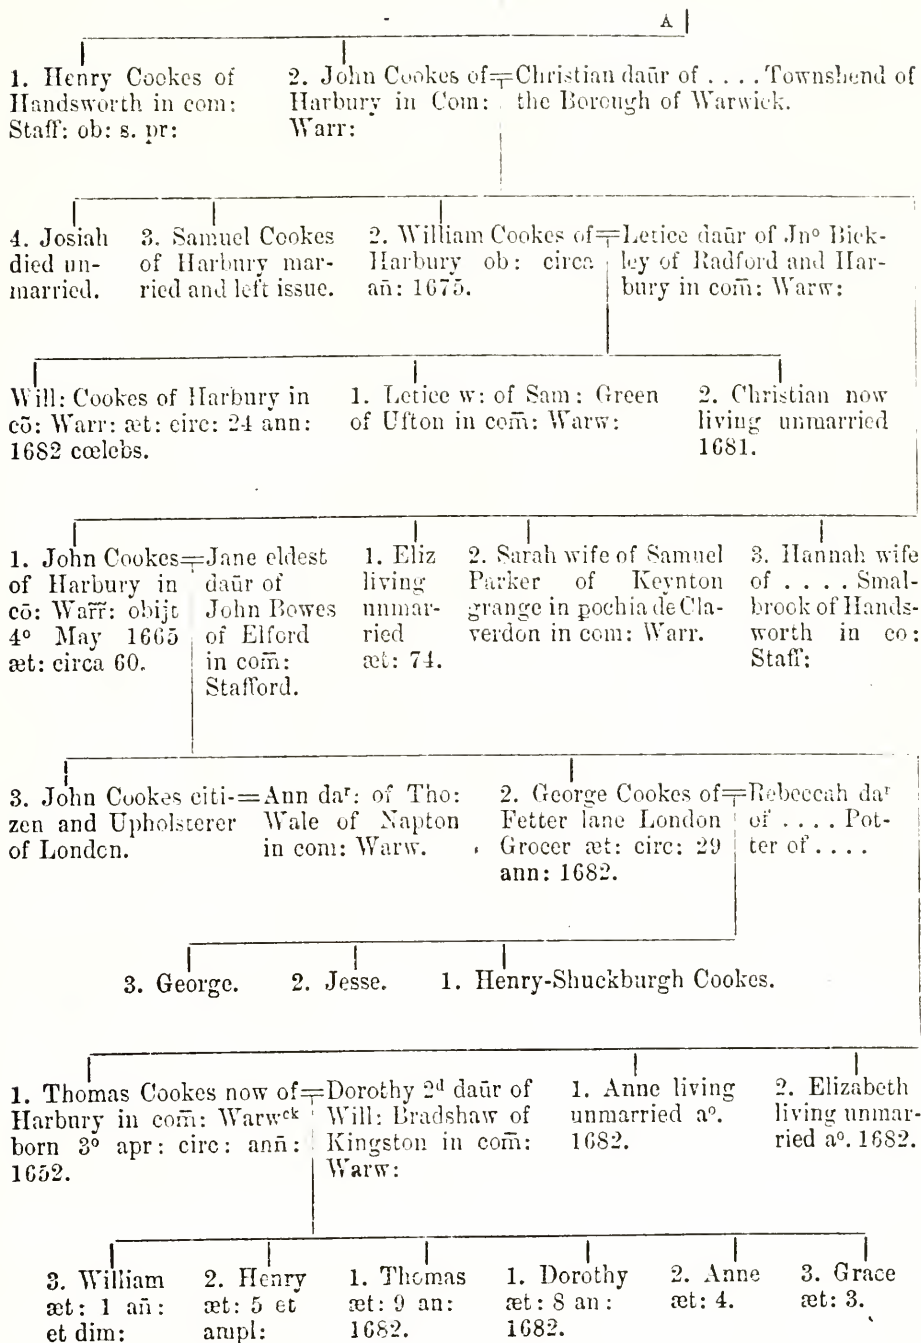 A
1. Henry Cookes of
Handsworth in com:
Staff: ob: s. pr:
2. John Cookes of
Harbury in Com:
Warr:
Christian daūr of . . . . Townshend of
the Borough of Warwick.
4. Josiah
died un-
married.
3. Samuel Cookes
of Harbury mar-
ried and left issue.
2. William Cookes of
Harbury ob: circa
añ: 1675.
Letice daūr of Jnº Bick-
ley of Radford and Har-
bury in com̄: Warw:
Will: Cookes of Harbury in
cō: Warr: æt: circ: 24 ann:
1682 cœlebs.
1. Letice w: of Sam: Green
of Ufton in com̄: Warw:
2. Christian now
living unmarried
1681.
1. John Cookes
of Harbury in
cō: War̄r̄: obijt
4º May 1665
æt: circa 60.
Jane eldest
daūr of
John Bowes
of Elford
in com̄:
Stafford.
1. Eliz
living
unmar-
ried
æt: 74.
2. Sarah wife of Samuel
Parker of Keynton
grange in pochia de Cla-
verdon in com: Warr.
3. Hannah wife
of . . . . Smal-
brook of Hands-
worth in co:
Staff:
3. John Cookes citi-
zen and Upholsterer
of London.
Ann daʳ: of Tho:
Wale of Napton
in com: Warw.
2. George Cookes of
Fetter lane London
Grocer æt: circ: 29
ann: 1682.
Rebeccah daʳ
of . . . . Pot-
ter of . . . .
3. George.
2. Jesse.
1. Henry-Shuckburgh Cookes.
1. Thomas Cookes now of
Harbury in com̄: Warwᶜᵏ
born 3º apr: circ: anñ:
1652.
Dorothy 2ᵈ daūr of
Will: Bradshaw of
Kingston in com̄:
Warw:
1. Anne living
unmarried aº.
1682.
2. Elizabeth
living unmar-
ried aº. 1682.
3. William
æt: 1 añ:
et dim:
2. Henry
æt: 5 et
ampl:
1. Thomas
æt: 9 an:
1682.
1. Dorothy
æt: 8 an:
1682.
2. Anne
æt: 4.
3. Grace
æt: 3.